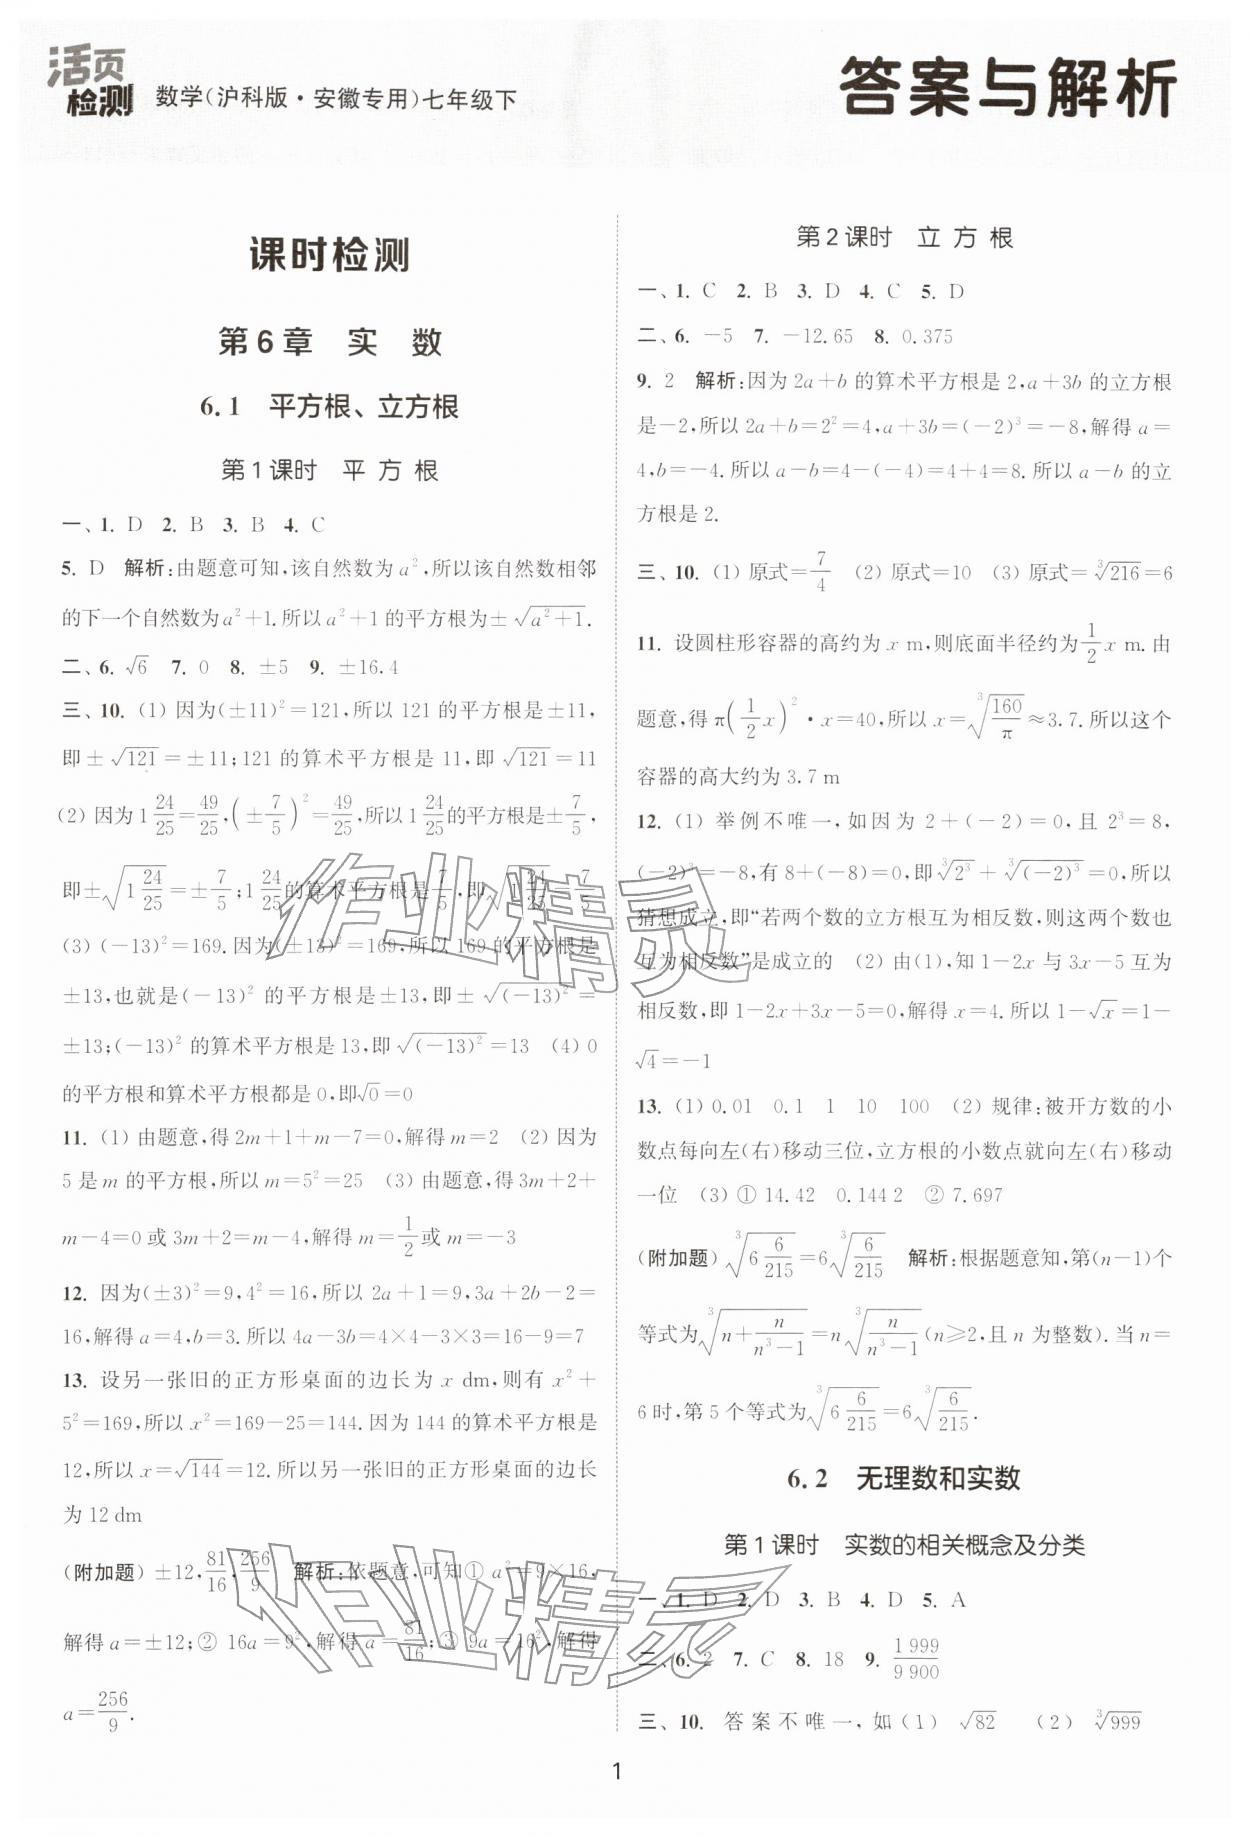 活页检测 数学(沪科版·安徽专用)七年级下
答案与解析
课时检测
第6章 实 数
6.1 平方根、立方根
第1课时 平 方 根
一、1. D 2. B 3. B 4. C
5. D 解析:由题意可知,该自然数为a²,所以该自然数相邻
的下一个自然数为a²+1.所以a²+1的平方根为±√(a²+1).
二、6. √6 7. 0 8. ±5 9. ±16.4
三、10. (1) 因为(±11)²=121,所以121的平方根是±11,
即±√121=±11;121的算术平方根是11,即√121=11
(2) 因为1 24/25=49/25,(±7/5)²=49/25,所以1 24/25的平方根是±7/5,
即±√(1 24/25)=±7/5;1 24/25的算术平方根是7/5,即√(1 24/25)=7/5
(3) (-13)²=169.因为(±13)²=169,所以169的平方根是
±13,也就是(-13)²的平方根是±13,即±√((-13)²)=
±13;(-13)²的算术平方根是13,即√((-13)²)=13 (4) 0
的平方根和算术平方根都是0,即√0=0
11. (1) 由题意,得2m+1+m-7=0,解得m=2 (2) 因为
5是m的平方根,所以m=5²=25 (3) 由题意,得3m+2+
m-4=0或3m+2=m-4,解得m=1/2或m=-3
12. 因为(±3)²=9,4²=16,所以2a+1=9,3a+2b-2=
16,解得a=4,b=3.所以4a-3b=4×4-3×3=16-9=7
13. 设另一张旧的正方形桌面的边长为x dm,则有x²+
5²=169,所以x²=169-25=144.因为144的算术平方根是
12,所以x=√144=12.所以另一张旧的正方形桌面的边长
为12 dm
(附加题) ±12,81/16,256/9 解析:依题意,可知① a²=9×16,
解得a=±12;② 16a=9²,解得a=81/16;③ 9a=16²,解得
a=256/9.
第2课时 立 方 根
一、1. C 2. B 3. D 4. C 5. D
二、6. -5 7. -12.65 8. 0.375
9. 2 解析:因为2a+b的算术平方根是2,a+3b的立方根
是-2,所以2a+b=2²=4,a+3b=(-2)³=-8,解得a=
4,b=-4.所以a-b=4-(-4)=4+4=8.所以a-b的立
方根是2.
三、10. (1) 原式=7/4 (2) 原式=10 (3) 原式=∛216=6
11. 设圆柱形容器的高约为x m,则底面半径约为1/2x m.由
题意,得π(1/2x)²·x=40,所以x=∛(160/π)≈3.7.所以这个
容器的高大约为3.7 m
12. (1) 举例不唯一,如因为2+(-2)=0,且2³=8,
(-2)³=-8,有8+(-8)=0,即∛(2³)+∛((-2)³)=0,所以
猜想成立,即“若两个数的立方根互为相反数,则这两个数也
互为相反数”是成立的 (2) 由(1),知1-2x与3x-5互为
相反数,即1-2x+3x-5=0,解得x=4.所以1-√x=1-
√4=-1
13. (1) 0.01 0.1 1 10 100 (2) 规律:被开方数的小
数点每向左(右)移动三位,立方根的小数点就向左(右)移动
一位 (3) ① 14.42 0.144 2 ② 7.697
(附加题) ∛(6 6/215)=6∛(6/215) 解析:根据题意知,第(n-1)个
等式为∛(n+n/(n³-1))=n∛(n/(n³-1))(n≥2,且n为整数).当n=
6时,第5个等式为∛(6 6/215)=6∛(6/215).
6.2 无理数和实数
第1课时 实数的相关概念及分类
一、1. D 2. D 3. B 4. D 5. A
二、6. 2 7. C 8. 18 9. 1 999/9 900
三、10. 答案不唯一,如(1) √82 (2) ∛999
1
作业精灵
作业精灵